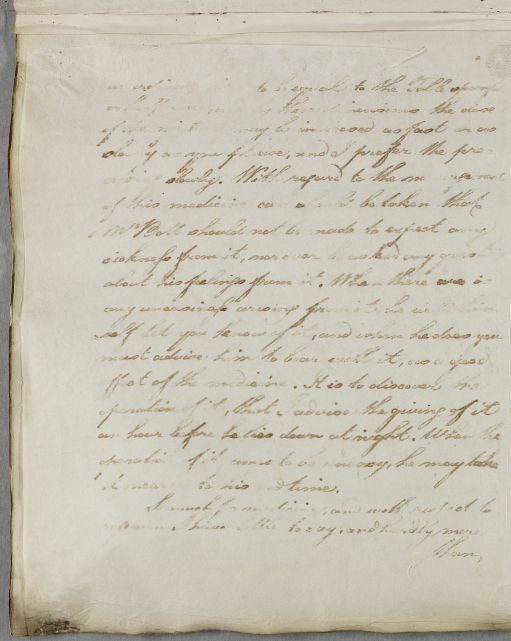 to be equal to the Table spoonful
the dose
of the mixture may be increased as fast or as
slowly as you please, and I prefer the pro-
slowly. With regard to the management
of this medicine care must be taken that
Mr Bell should not be made to expect any
sickness from it, nor ever be asked any
about his feelings from it. When there is
any uneasiness arising from it, he will him-
self let you know of it, and when he does you
must advise him to bear with it, as a good
effect of the medicine. It is to discover the
operation of it, that I advise the giving of it
an hour before he lies down at night. When the
operation of it comes to be he may take
it nearer to his bed time.
So much for medicine, and with respect to
regimen I have little to say, and hardly more
than